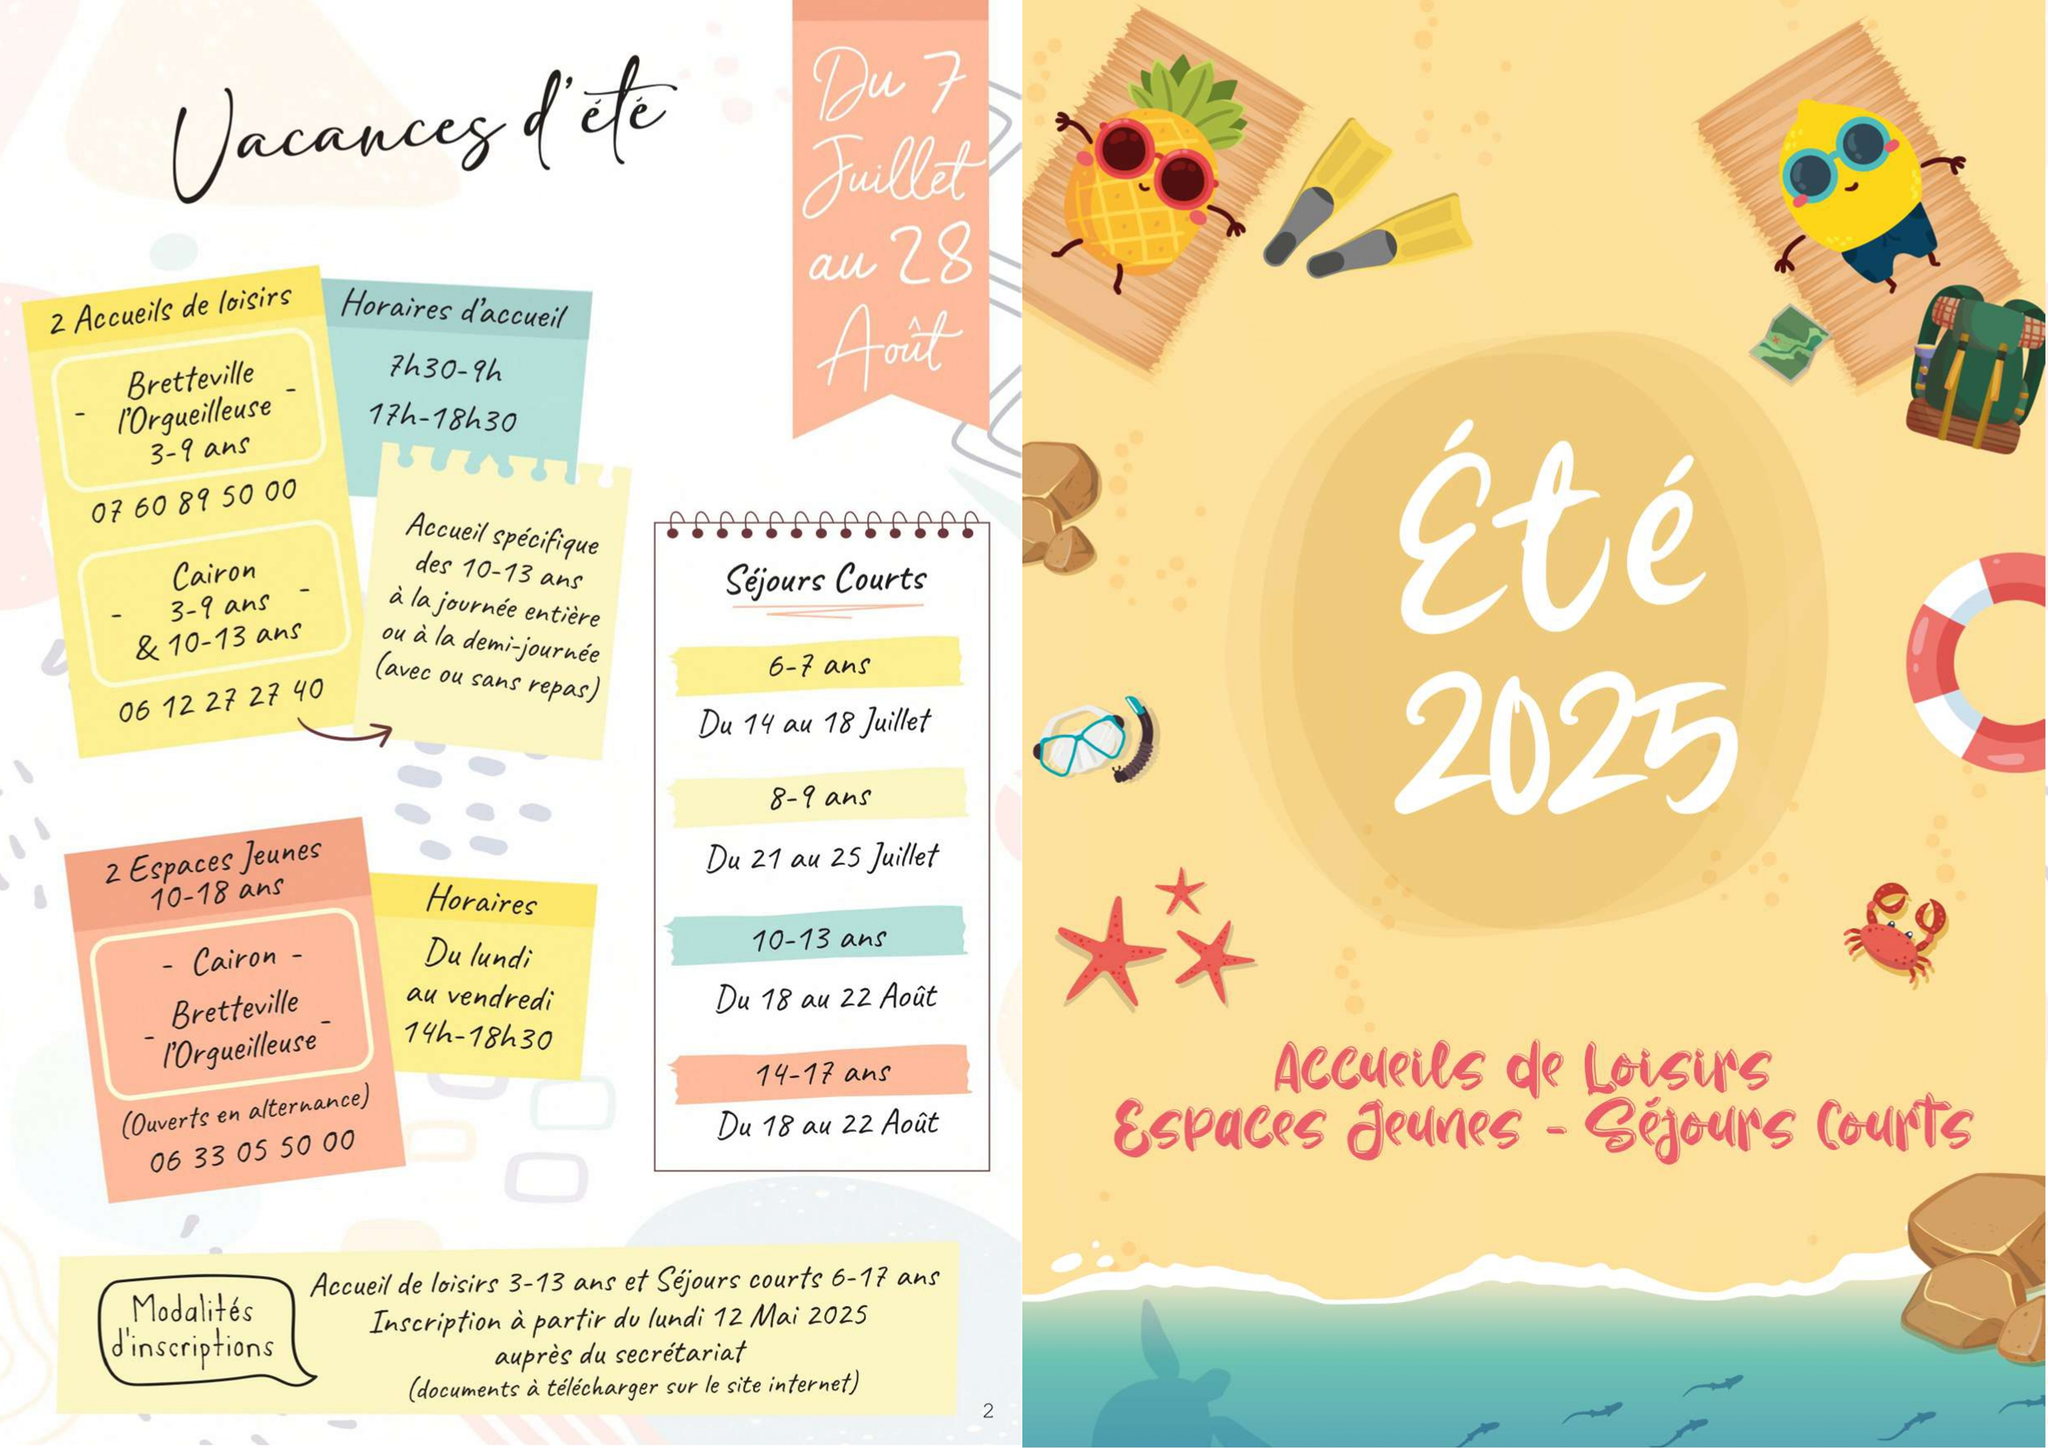 Vacances d'été
Du 7
Juillet
au 28
Août
2 Accueils de loisirs
- Bretteville -
l'Orgueilleuse
3-9 ans
07 60 89 50 00
- Cairon -
3-9 ans
& 10-13 ans
06 12 27 27 40
Horaires d'accueil
7h30-9h
17h-18h30
Accueil spécifique
des 10-13 ans
à la journée entière
ou à la demi-journée
(avec ou sans repas)
2 Espaces Jeunes
10-18 ans
- Cairon -
- Bretteville -
l'Orgueilleuse
(Ouverts en alternance)
06 33 05 50 00
Horaires
Du lundi
au vendredi
14h-18h30
Séjours Courts
6-7 ans
Du 14 au 18 Juillet
8-9 ans
Du 21 au 25 Juillet
10-13 ans
Du 18 au 22 Août
14-17 ans
Du 18 au 22 Août
Modalités
d'inscriptions
Accueil de loisirs 3-13 ans et Séjours courts 6-17 ans
Inscription à partir du lundi 12 Mai 2025
auprès du secrétariat
(documents à télécharger sur le site internet)
2
Été
2025
Accueils de Loisirs
Espaces Jeunes - Séjours Courts